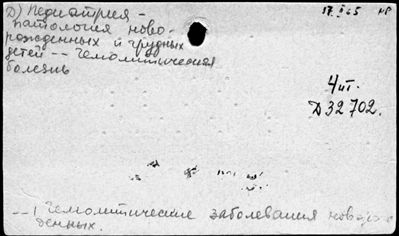 Д) Педиатрия -
патология ново-
рожденных и грудных
детей -- Гемолитическая
болезнь
17. II 65 НР
4 ит.
Д 32 702.
-- 1 Гемолитические заболевания новорож
денных.